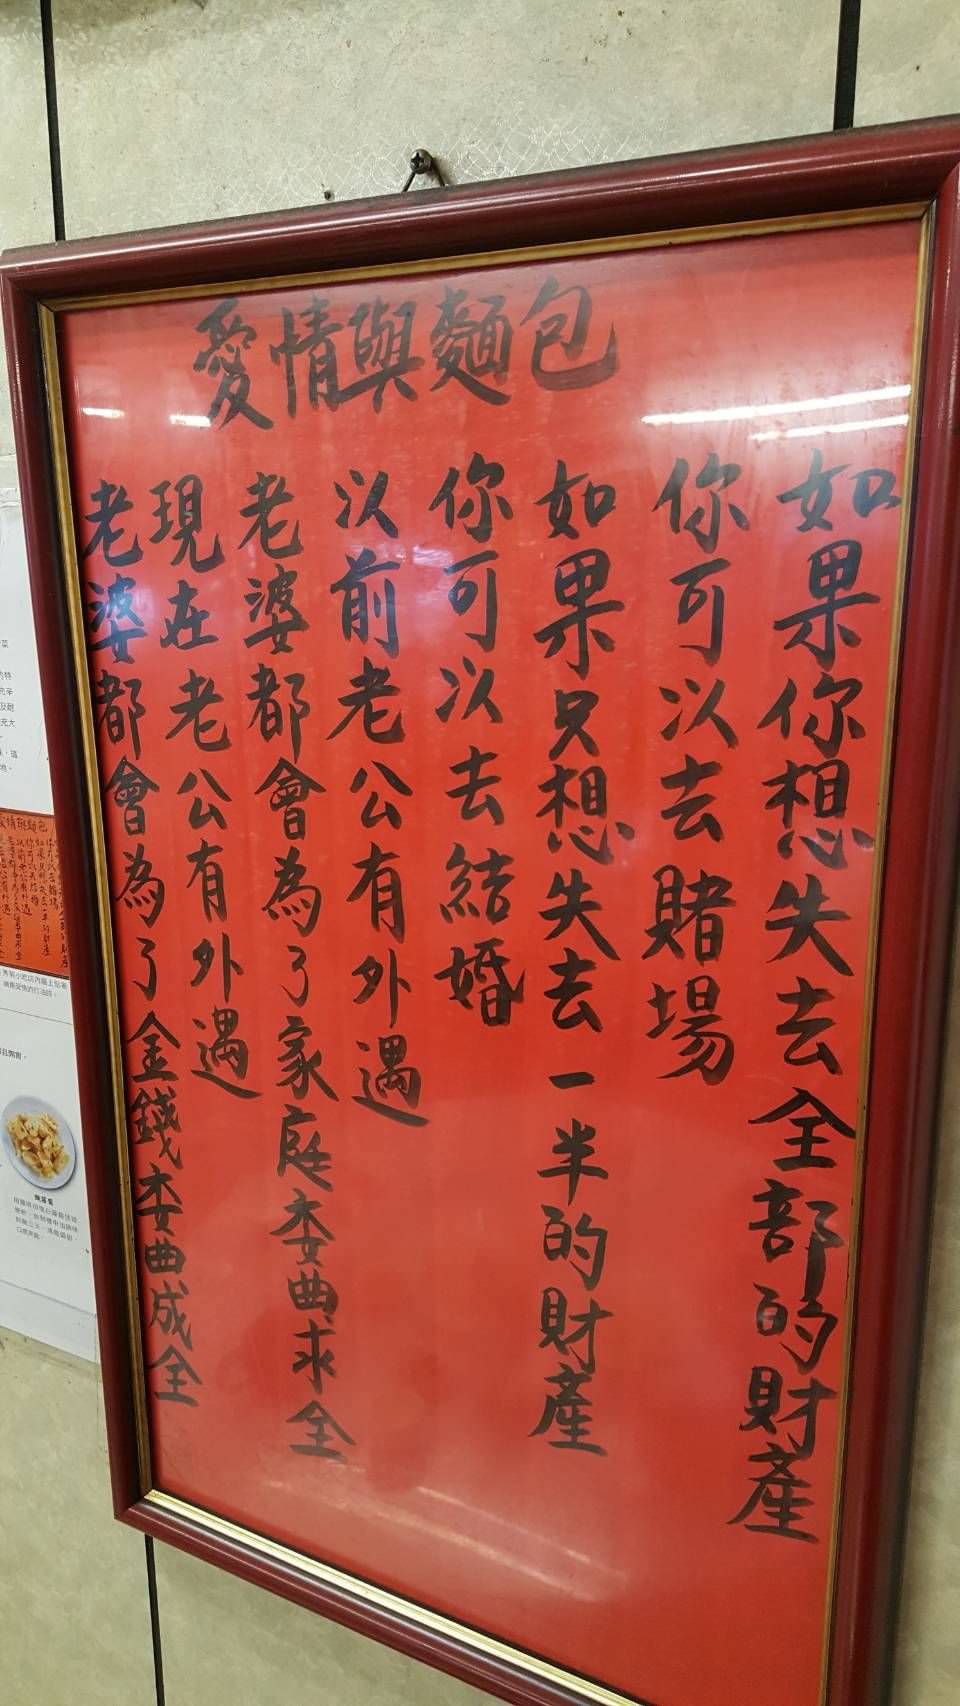 愛情與麵包
如果你想失去全部的財產
你可以去賭場
如果只想失去一半的財產
你可以去結婚
以前老公有外遇
老婆都會為了家庭委曲求全
現在老公有外遇
老婆都會為了金錢委曲成全